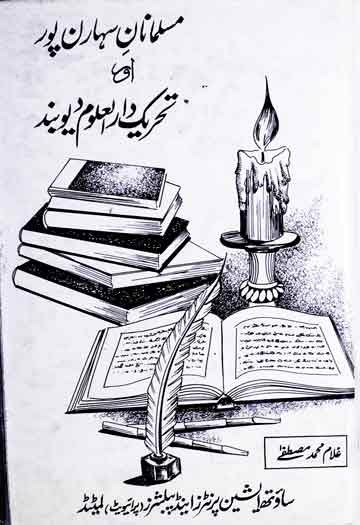 مسلمانانِ سہارن پور
اور
تحریک دارالعلوم دیوبند
غلام محمد مصطفےٰ
ساؤتھ ایشین پرنٹرز اینڈ پبلیشرز (پرائیویٹ) لمیٹیڈ